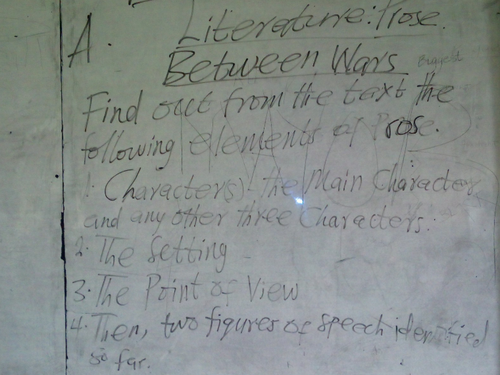 A. Literature: Prose.
Between Wars
Find out from the taxt the
following elements of Prose.
1. Character(s) - the Main Character
and any other three Characters.
2. The Setting
3. The Point of View
4. Then, two figures of speech identified
so far.